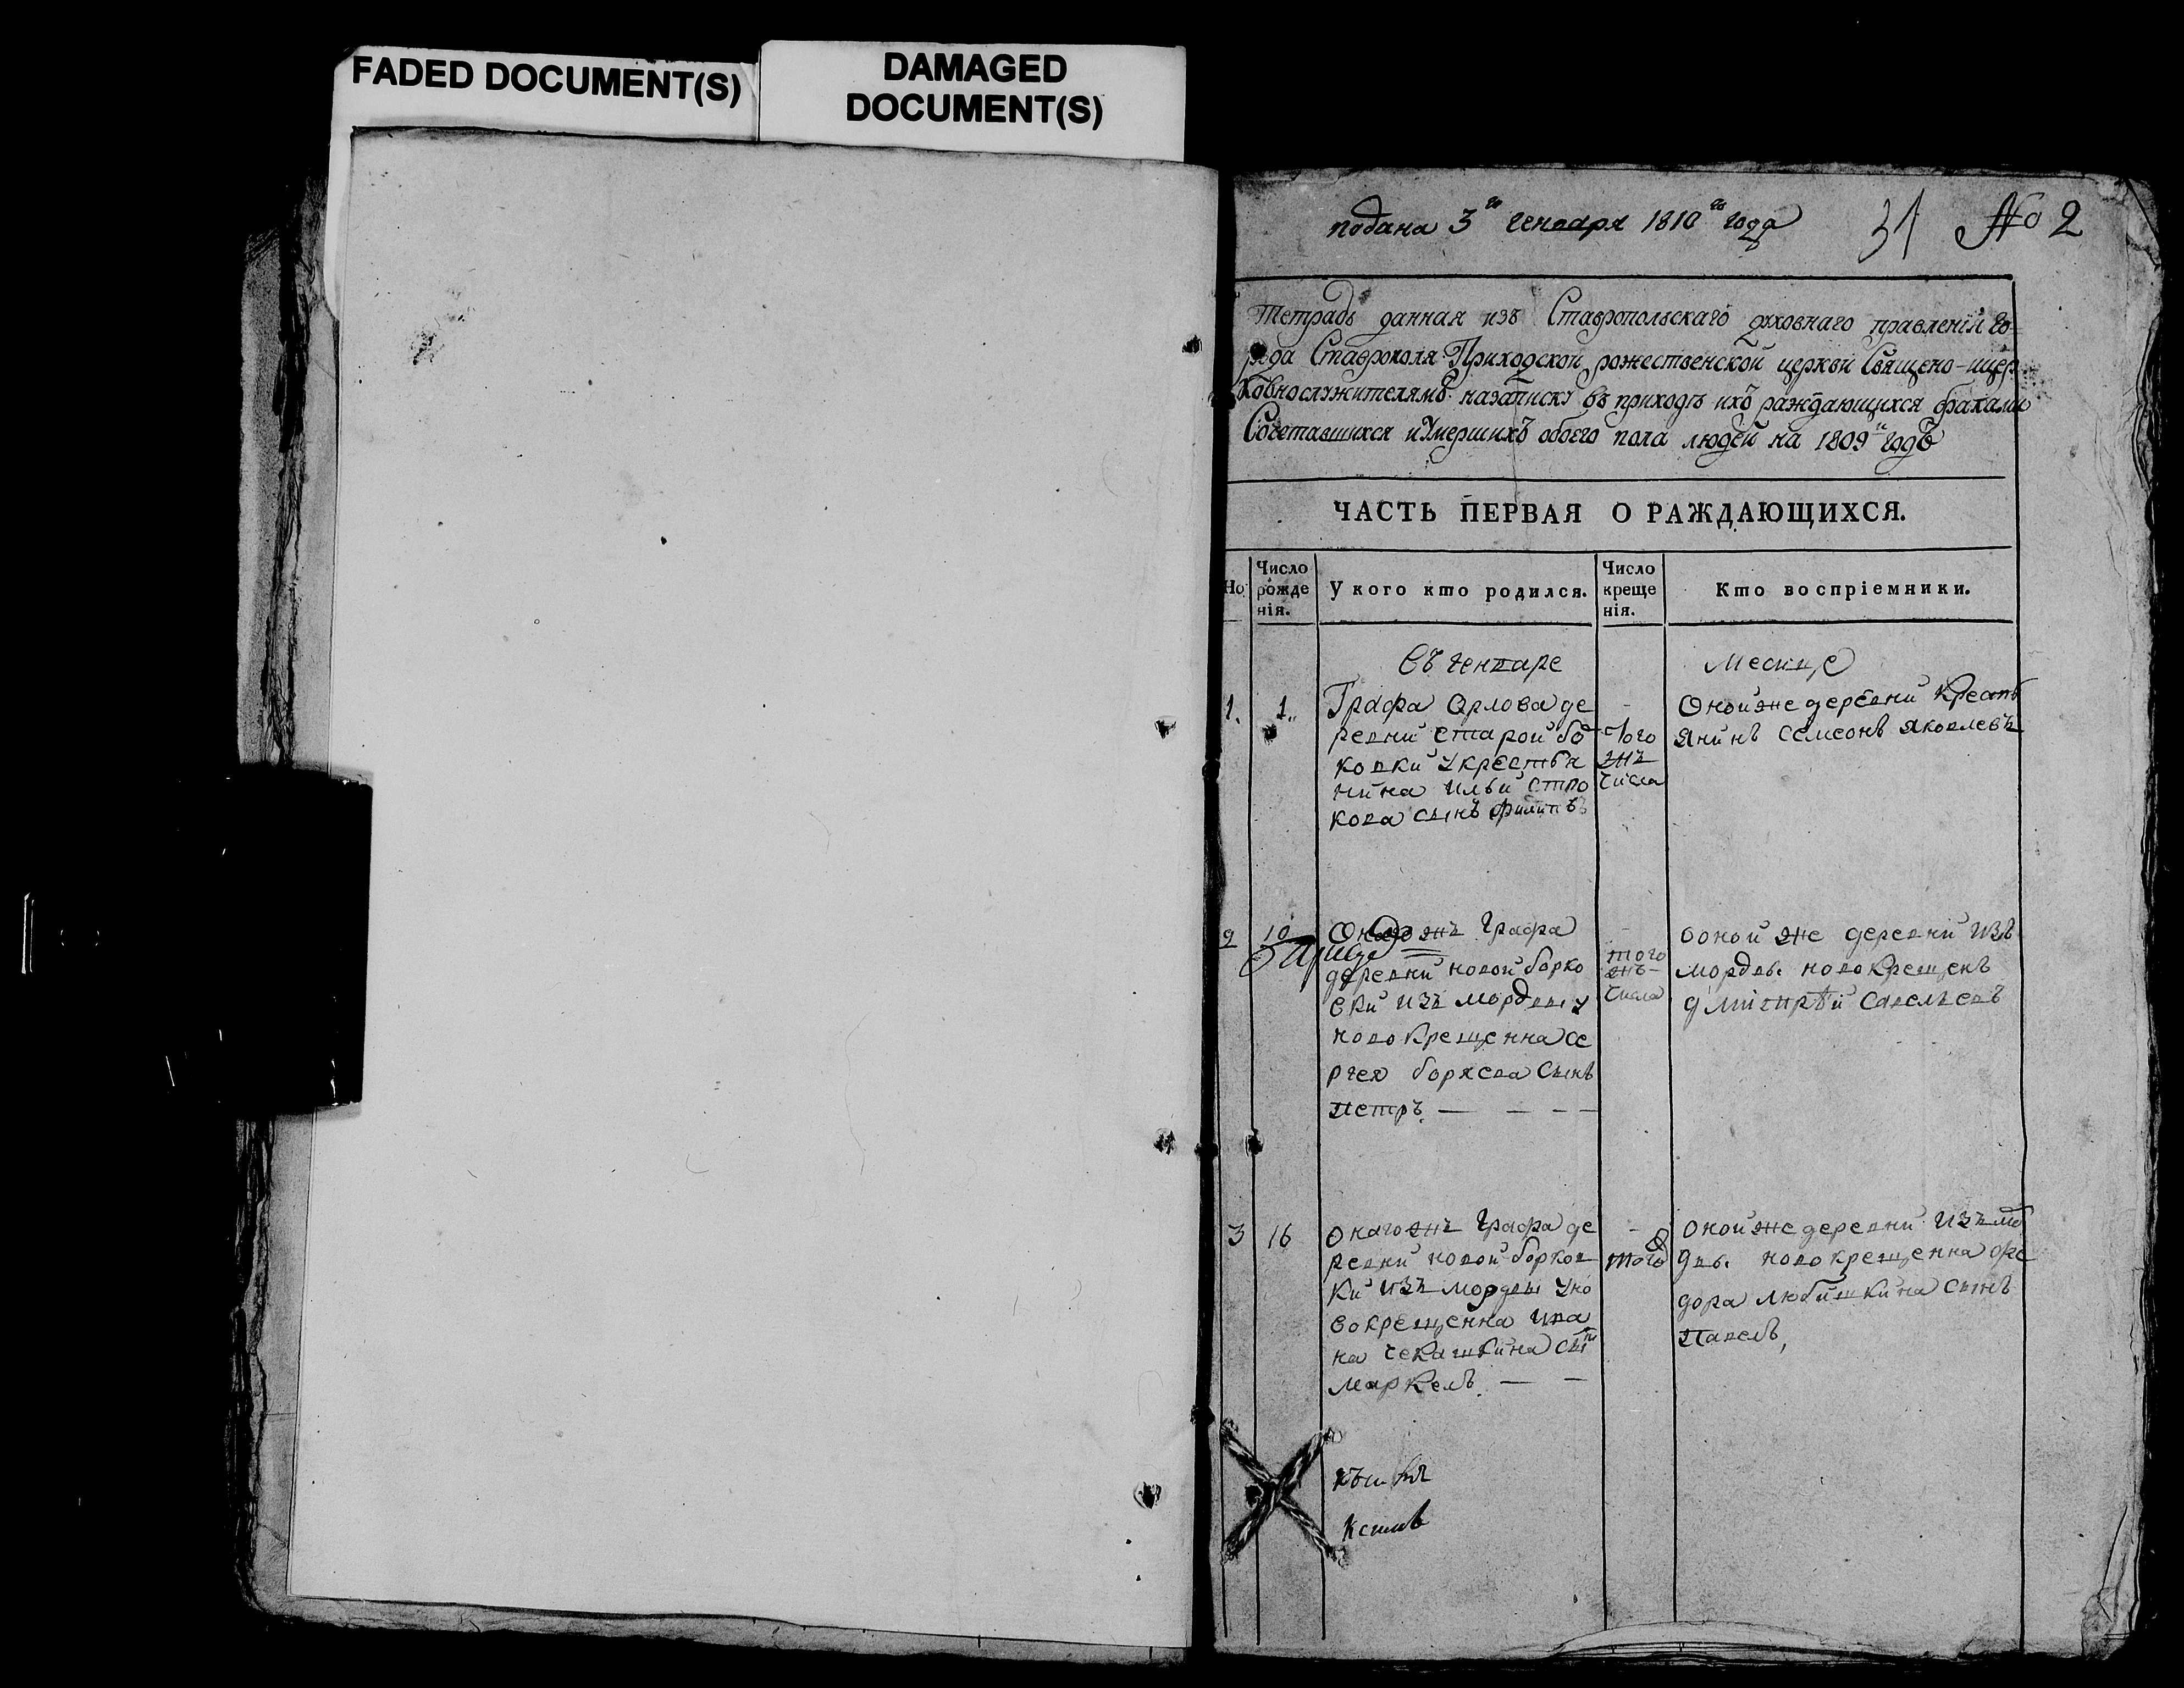 FADED DOCUMENT(S)
DAMAGED
DOCUMENT(S)
подана 3го генваря 1810го года 31 No 2
Тетрадь данная изъ Ставропольскаго духовнаго правленія го-
рода Ставрополя Приходской рожественской церкви Священо-ицер
ковнослужителямъ назаписку въ приходѣ ихъ раждающихся браками
Сочетавшихся иУмершихъ обоего пола людей на 1809й годъ
ЧАСТЬ ПЕРВАЯ О РАЖДАЮЩИХСЯ.
Но
Число
рожде
нія.
У кого кто родился.
Число
креще
нія.
Кто воспріемники.
въ генваре месяце
1. 1.
Графа Орлова де
ревни старой бо
ковки укрестья
нина ильи стро
кова сынъ филипъ
того
жъ
числа
Оной же деревни Кресть
янинъ семеонъ яковлевъ
2 10
Онаго жъ Графа
деревни новой борко
вки изъ мордвы у
новокрещенна се
ргея боряева сынъ
петръ. — — — —
того
жъ
числа
Оной же деревни изъ
мордвы новокрещенъ
дмитрѣй савельевъ
3 16
онагожъ Графа де
ревни новой борков
ки изъ мордвы уно
вокрещенна ива
на чекашкина сынъ
маркелъ. — —
того
оной же деревни изъ мо
двы новокрещенна фе
дора любишкина сынъ
павелъ,